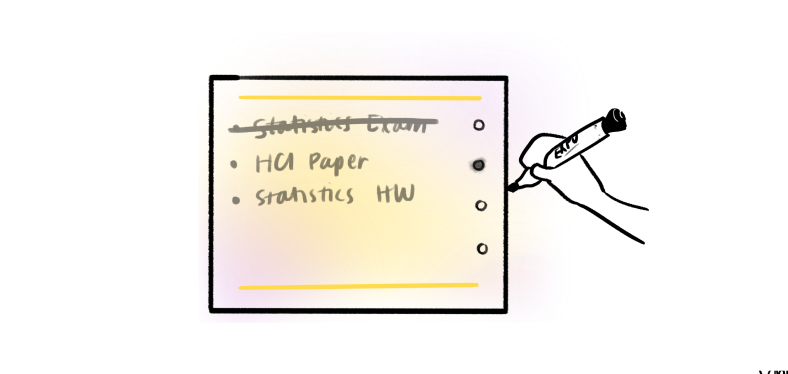 Statistics Exam
HCI Paper
Statistics HW
EXPO